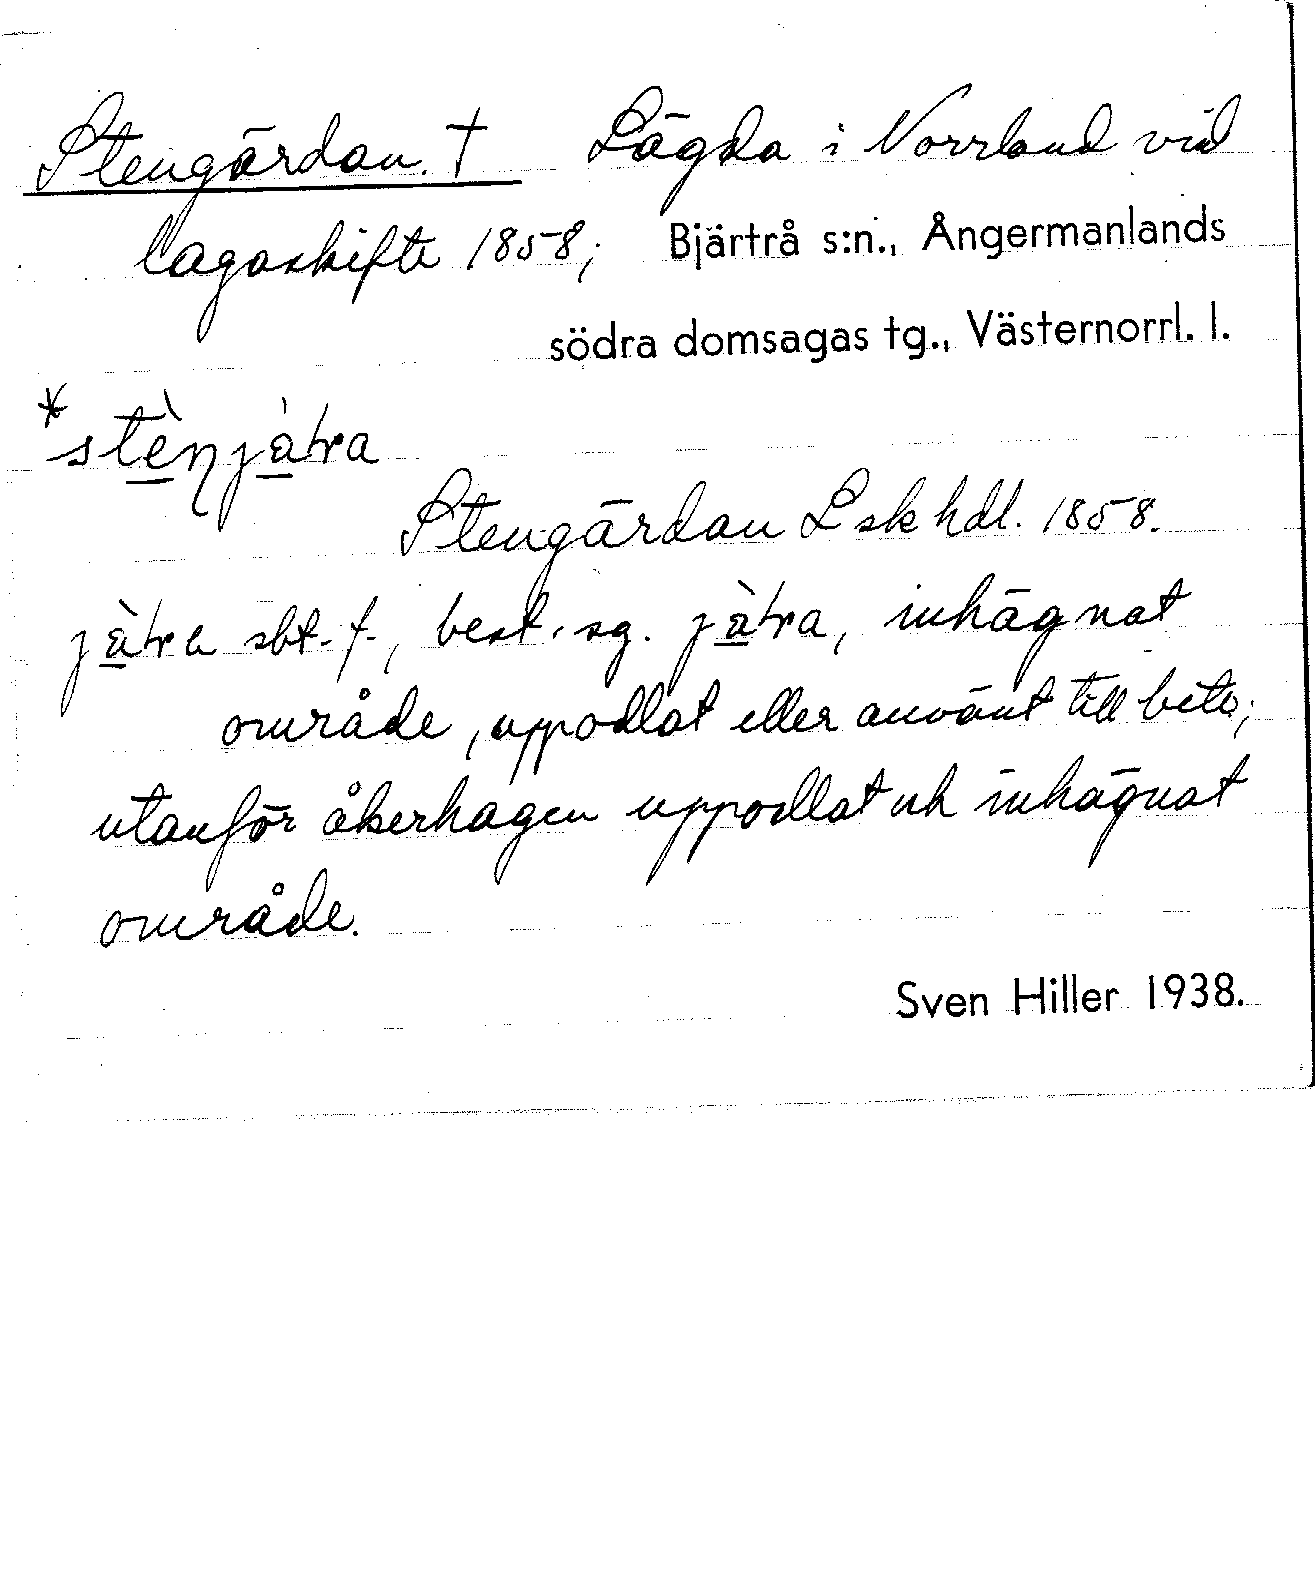 Stengärdan. † Lägda i Norrland vid
lagaskifte 1858; Bjärtrå s:n., Ångermanlands
södra domsagas tg., Västernorrl. l.
*
Stengärdan L sk hdl. 1858.
sbt. f., best. sg. inhägnat
område, uppodlat eller använt till bete;
utanför åkerhagen uppodlat och inhägnat
område.
Sven Hiller 1938.